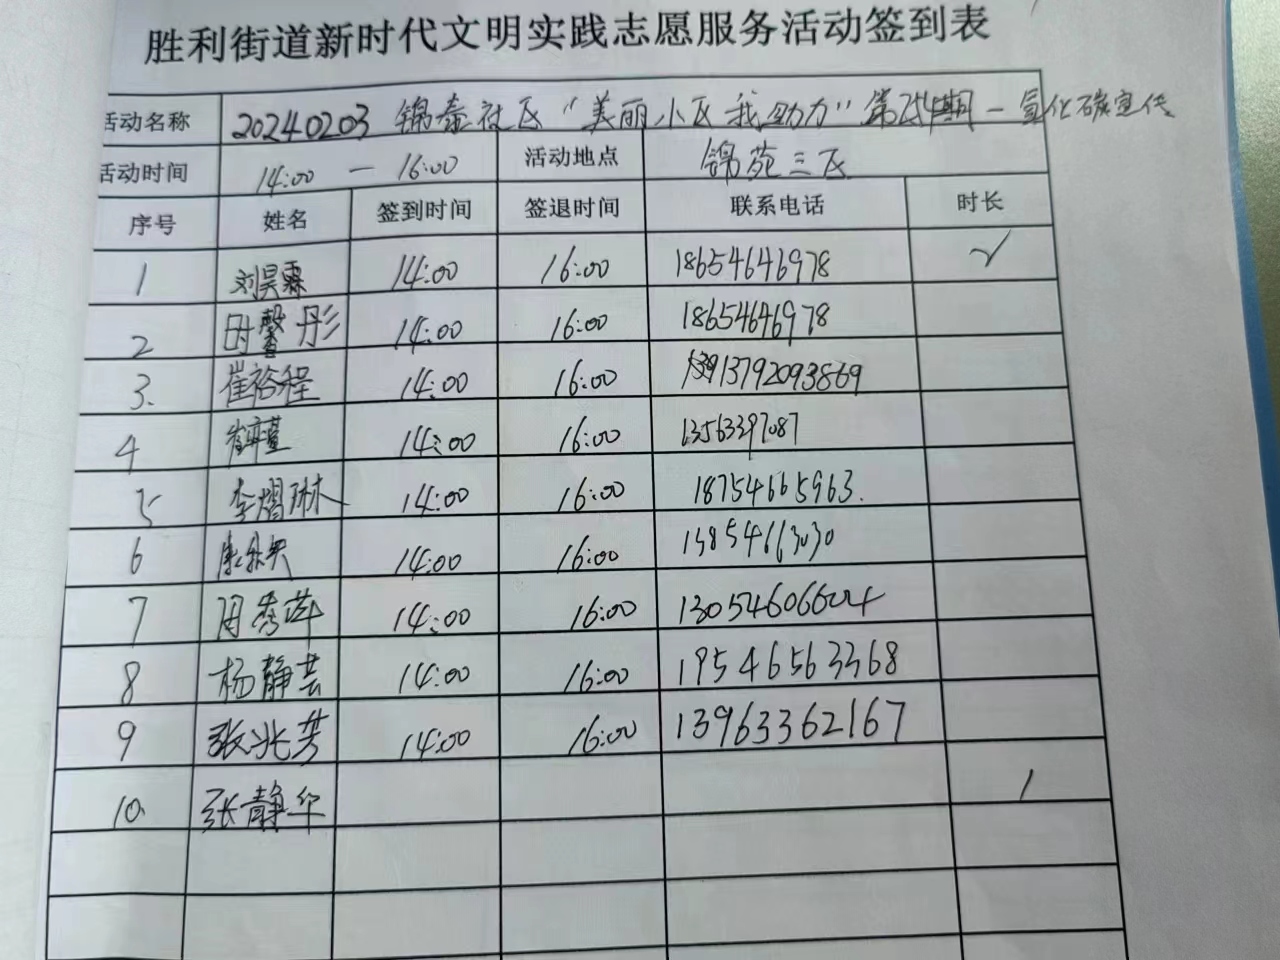 胜利街道新时代文明实践志愿服务活动签到表
活动名称 20240203 锦泰社区“美丽小区 我助力” 第 期 一氧化碳宣传
活动时间 14:00 — 16:00 活动地点 锦苑三区
序号 姓名 签到时间 签退时间 联系电话 时长
1 刘昊霖 14:00 16:00 18654646978 √
2 田馨彤 14:00 16:00 18654646978
3. 崔裕程 14:00 16:00 13792093869
4 14:00 16:00 13563397087
5 李熠琳 14:00 16:00 18754665963.
6 14:00 16:00 15854663030
7 周秀萍 14:00 16:00
8 杨静芸 14:00 16:00 19546563368
9 张兆芳 14:00 16:00 13963362167
10 张静华